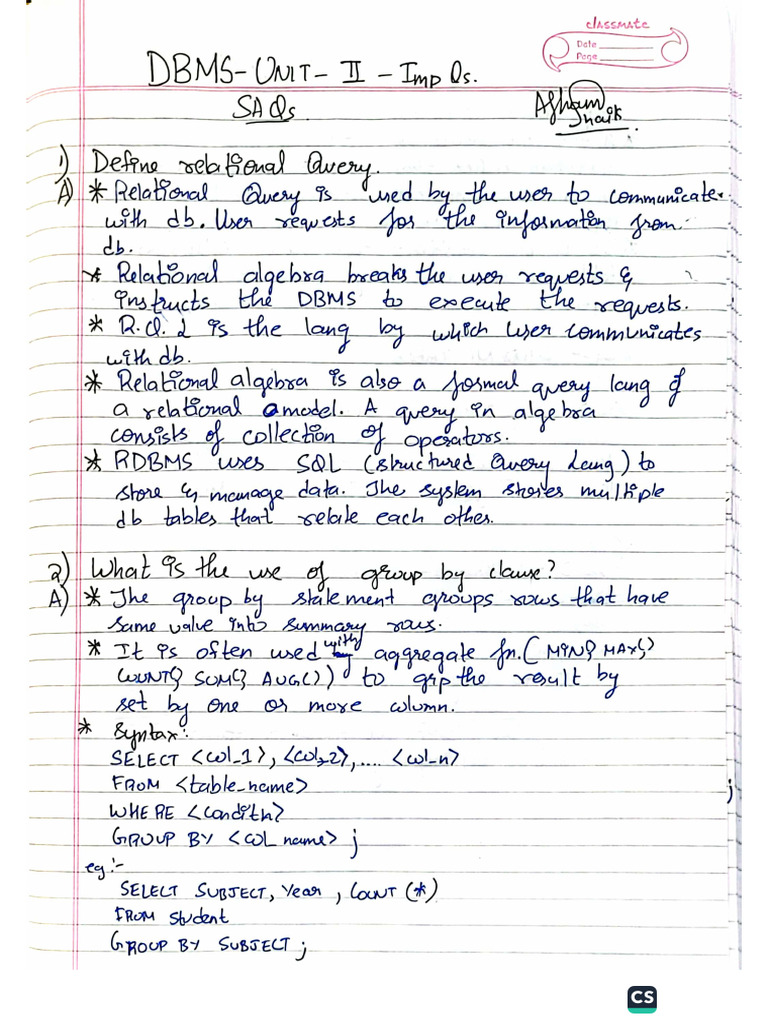 classmate
Date
Page
DBMS-UNIT-II-Imp Qs.
SAQs
1) Define relational Query.
A) * Relational Query is used by the user to communicate
with db. User requests for the information from
db.
* Relational algebra breaks the user requests &
instructs the DBMS to execute the requests.
* R.Q.L is the lang by which user communicates
with db.
* Relational algebra is also a formal query lang of
a relational model. A query in algebra
consists of collection of operators.
* RDBMS uses SQL (Structured Query Lang) to
store & manage data. The system stores multiple
db tables that relate each other.
2) What is the use of group by clause?
A) * The group by statement groups rows that have
same value into summary rows.
* It is often used with aggregate fn. (MIN() MAX()
COUNT() SUM() AUG()) to grp the result by
set by one or more column.
* Syntax:
SELECT <col_1>, <col_2>, .... <col_n>
FROM <table_name>
WHERE <conditn>
GROUP BY <col_name> ;
eg:-
SELECT SUBJECT, Year, COUNT (*)
FROM Student
GROUP BY SUBJECT ;
CS